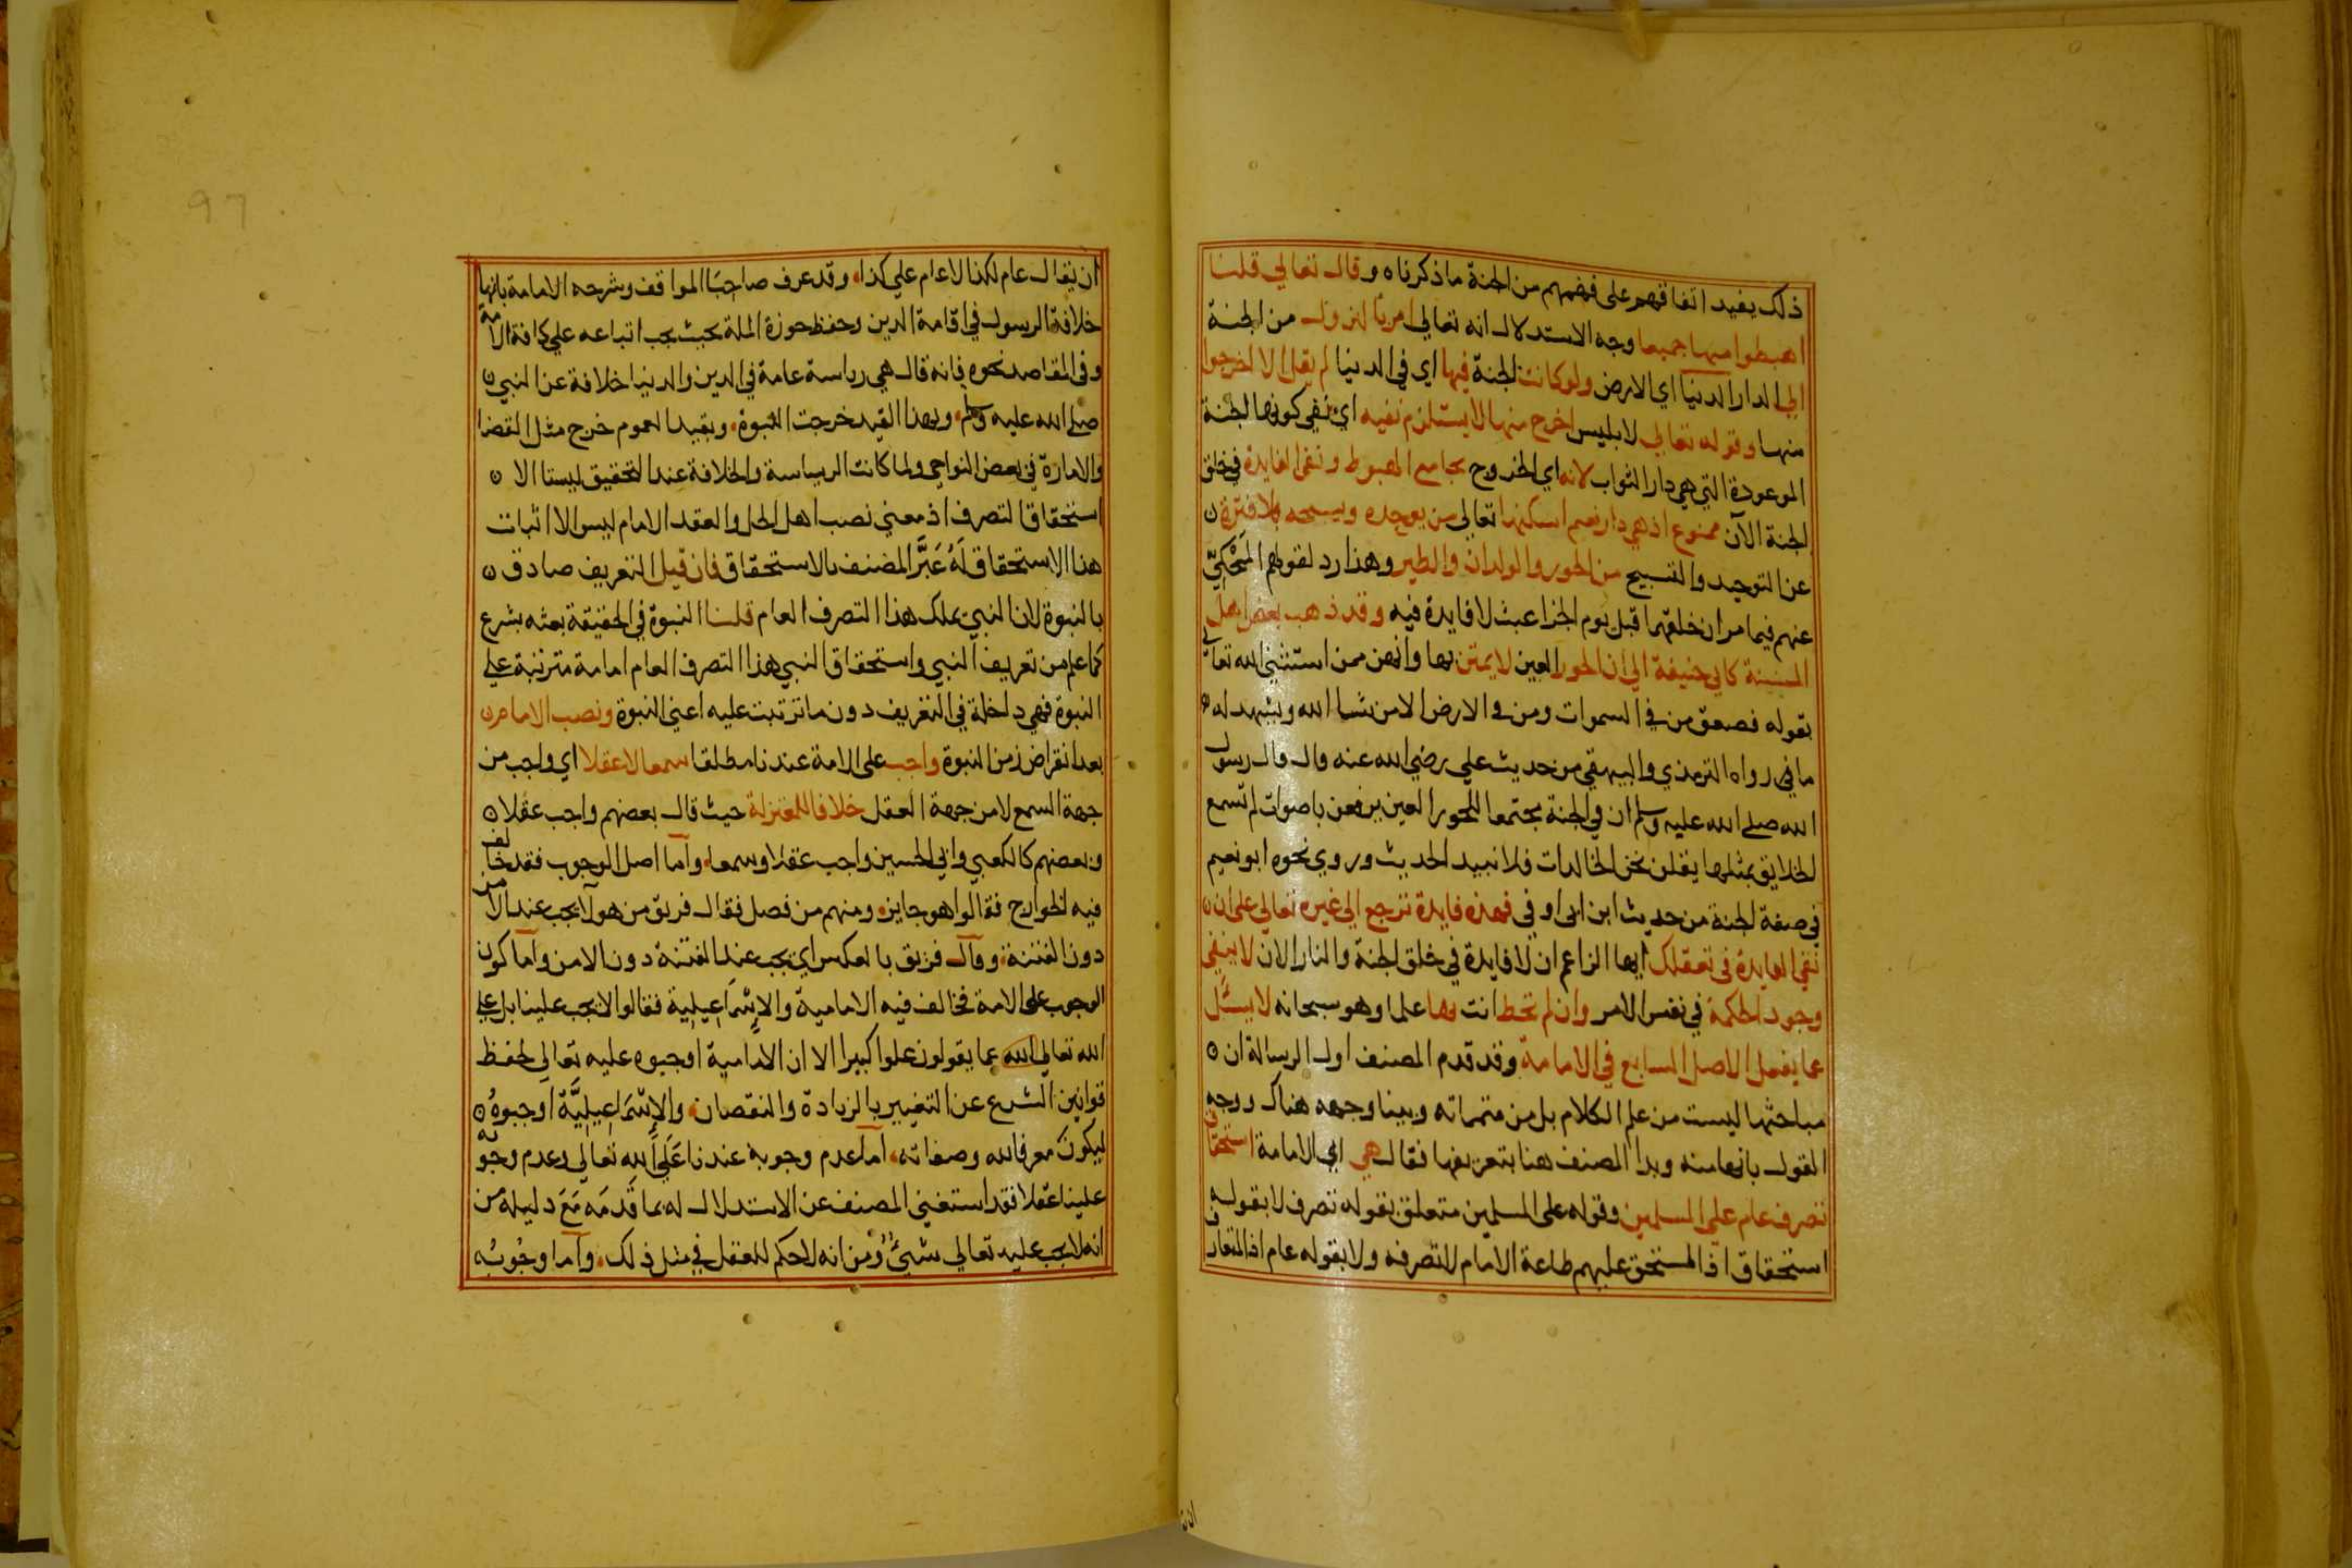 ذلك يفيد اتفاقهم على فهمهم من الجنة ما ذكرناه وقال تعالي قلنا
اهبطوا منها جميعا وجه الاستدلال انه تعالي امر بالنزول من الجنة
الي الدار الدنيا اي الارض ولو كانت الجنة فيها اي في الدنيا لم يقل الا اخرجوا
منها وقوله تعالي لابليس اخرج منها لا يستلزم نفيه اي نفي كونها الجنة
الموعودة التي هي دار الثواب لانه اي الخروج يجامع الهبوط ونفي الفايدة في خلق
الجنة الآن ممنوع اذ هي دار نعيم اسكنها تعالي من يوحده ويسبحه بلا فترة
عن التوحيد والتسبيح من الحور والولدان والطير وهذا رد لقولهم المَحْكِيّ
عنهم فيما مر ان خلقهما قبل يوم الجزا عبث لا فايدة فيه وقد ذهب بعض اهل
السنة كابي حنيفة الي ان الحور العين لا يمتن بها وانهن ممن استثني الله تعالي
بقوله فصعق من في السموات ومن في الارض الا من شا الله ويشهد له
ما في رواه الترمذي والبيهقي من حديث علي رضي الله عنه قال قال رسول
الله صلي الله عليه وسلم ان في الجنة مجتمعا للحور العين يرفعن باصوات لم تسمع
الخلايق بمثلها يقلن نحن الخالدات فلا نبيد الحديث وروي نحوه ابو نعيم
في صفة الجنة من حديث ابن ابي اوفي فهذه فايدة ترجع الي غيره تعالي على ان
نفي الفايدة في تعقلك ايها الزاعم ان لا فايدة في خلق الجنة والنار الان لا ينفي
وجود الحكمة في نفس الامر وان لم تحط انت بها علما وهو سبحانه لا يسئل
عما يفعل الاصل السابع في الامامة وقد قدم المصنف اول الرسالة ان
مباحثها ليست من علم الكلام بل من متمماته وبينا وجهه هناك ووجه
القول بانها منه وبدا المصنف هنا بتعريفها فقال هي اي الامامة استحقاق
تصرف عام علي المسلمين وقوله على المسلمين متعلق بقوله تصرف لا بقوله
استحقاق اذ المستحق عليهم طاعة الامام لا تصرفه ولا بقوله عام اذ المتعارف
ان يقال عام لكذا لا عام علي كذا وقد عرف صاحبَا المواقف وشرحه الامامة بانها
خلافة الرسول في اقامة الدين وحفظ حوزة الملة بحيث يجب اتباعه علي كافة الامة
وفي المقاصد نحوه فانه قال هي رياسة عامة في الدين والدنيا خلافة عن النبي
صلي الله عليه وسلم وبهذا القيد خرجت النبوة وبقيد العموم خرج مثل القضا
والامارة في بعض النواحي ولما كانت الرياسة والخلافة عند التحقيق ليستا الا
استحقاق التصرف اذ معني نصب اهل الحل والعقد الامام ليس الا اثبات
هذا الاستحقاق لَهُ عَبَّرَ المصنف بالاستحقاق فان قيل التعريف صادق
بالنبوة لان النبي يملك هذا التصرف العام قلنا النبوة في الحقيقة بعثه بشرع
كما علم من تعريف النبي واستحقاق النبي هذا التصرف العام امامة مترتبة علي
النبوة فهي داخلة في التعريف دون ما ترتبت عليه اعني النبوة ونصب الامام
بعد انقراض زمن النبوة واجب على الامة عندنا مطلقا سمعا لا عقلا اي واجب من
جهة السمع لا من جهة العقل خلافا للمعتزلة حيث قال بعضهم واجب عقلا
وبعضهم كالكعبي وابي الحسين واجب عقلا وسمعا وأما اصل الوجوب فقد خالف
فيه الخوارج فقالوا هو جايز ومنهم من فصل فقال فريق من هولآ يجب عند الامن
دون الفتنة وقال فريق بالعكس اي يجب عند الفتنة دون الامن وأما كون
الوجوب على الامة فخالف فيه الامامية والاِسْمَاعِيلِية فقالوا لا يجب علينا بل علي
الله تعالي الله عما يقولون علوا كبيرا الا ان الامامية اوجبوه عليه تعالي لحفظ
قوانين الشرع عن التغيير بالزيادة والنقصان والاِسْمَاعِيلِيَّة اوجبوهُ
ليكون معرفا لله وصفاته أما عدم وجوبه عندنا عَلَى الله تعالي وعدم وجوبه
علينا عقلا فقد استغني المصنف عن الاستدلال له بما قَدمَه مَعَ دليله من
انه لا يجب عليه تعالي شيئٌ وَمن انه لا حكم للعقل في مثل ذلك وأما وجُوبُه